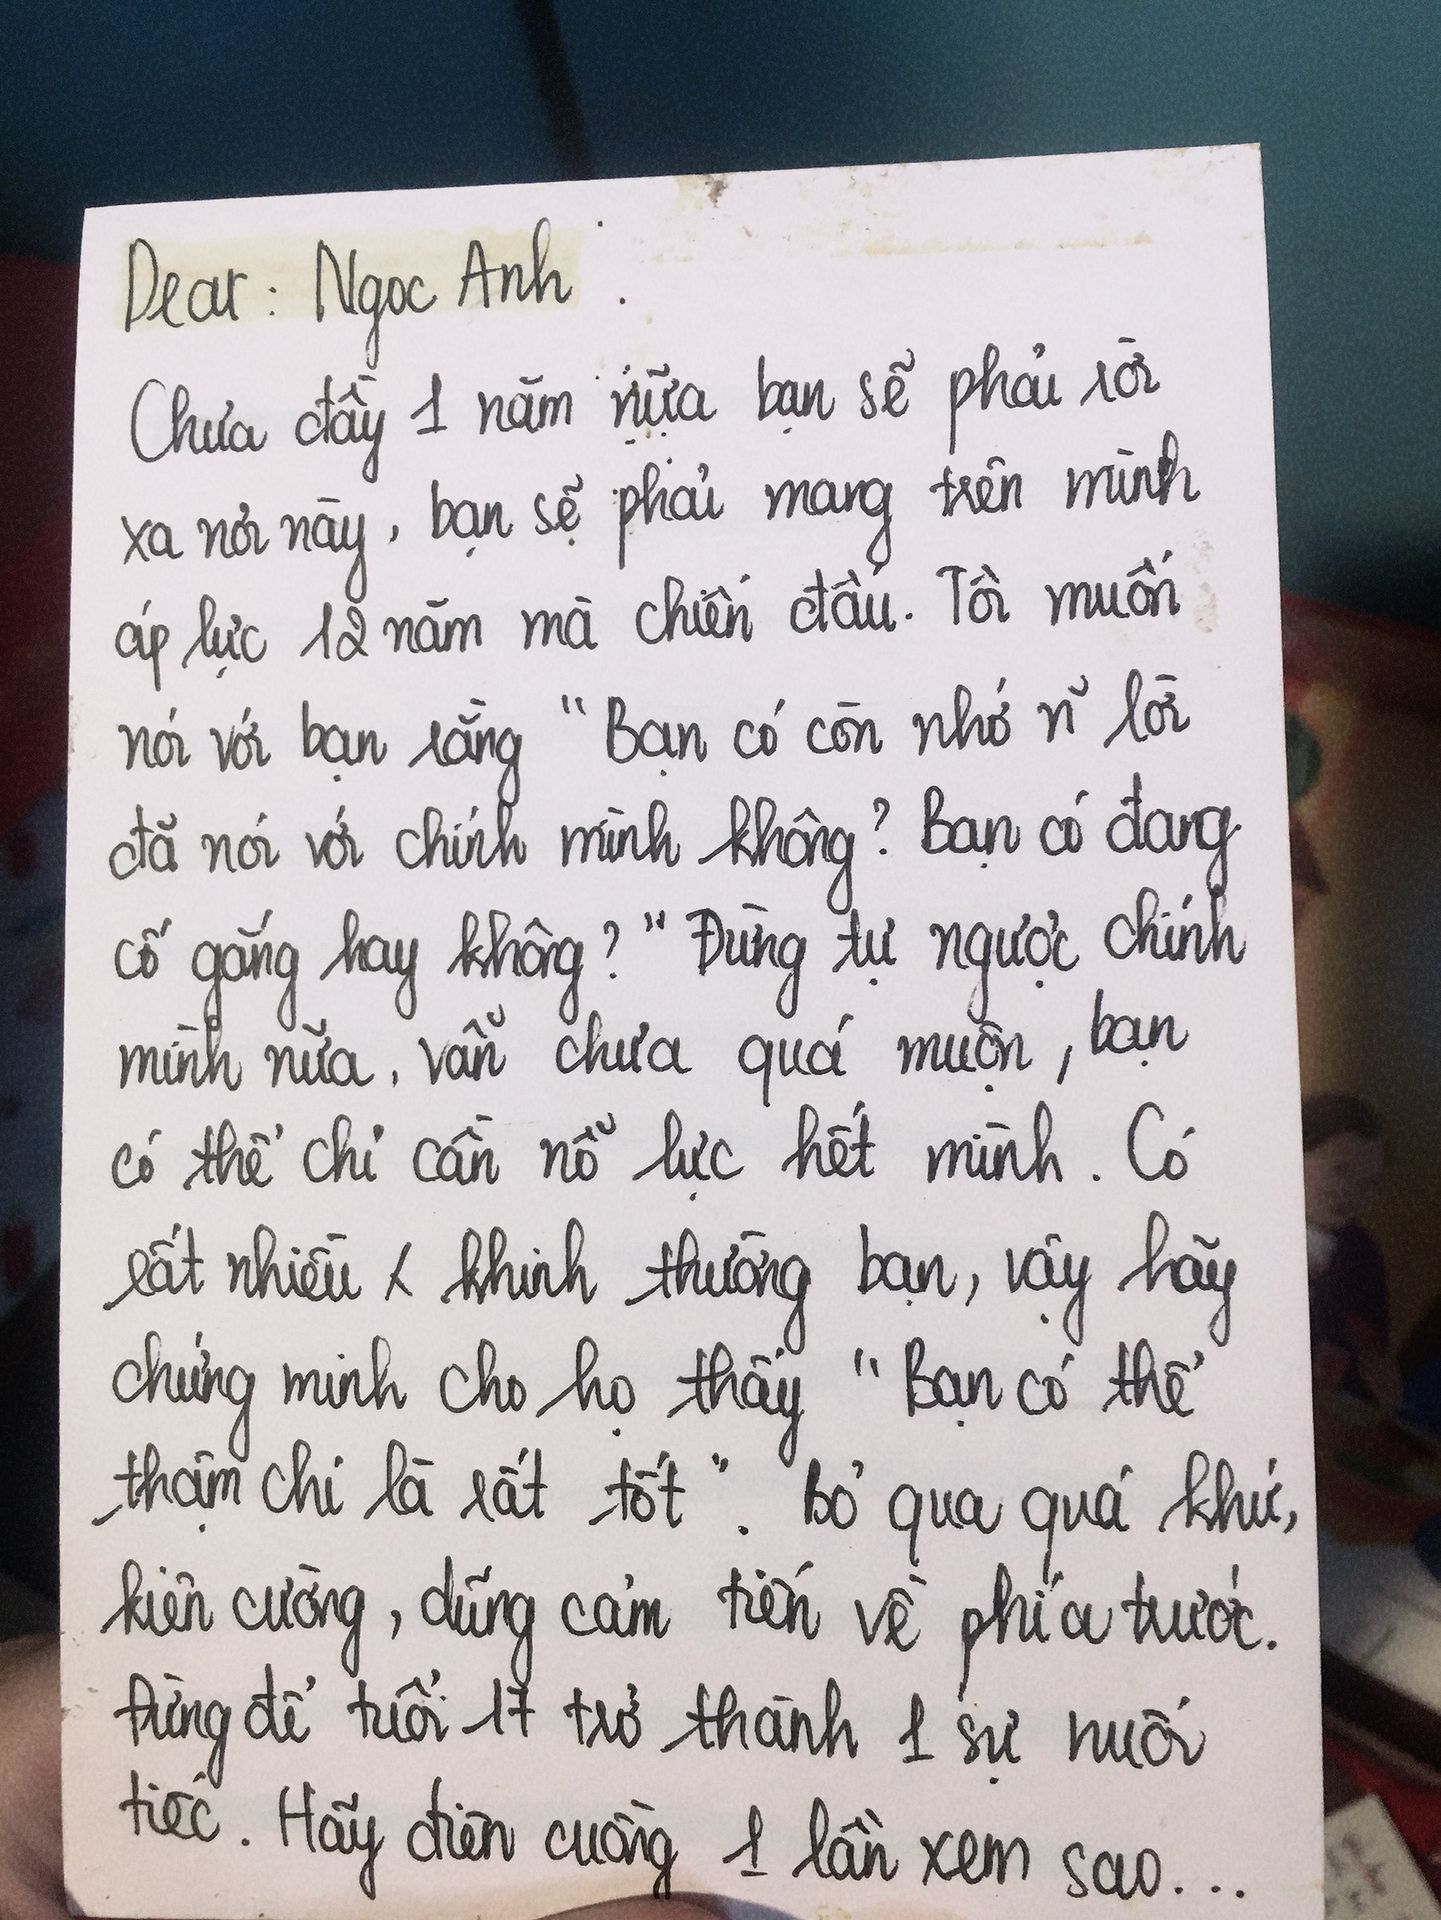 Dear: Ngoc Anh.
Chưa đầy 1 năm nữa bạn sẽ phải rời
xa nơi này, bạn sẽ phải mang trên mình
áp lực 12 năm mà chiến đấu. Tôi muốn
nói với bạn rằng "Bạn có còn nhớ n~ lời
đã nói với chính mình không? Bạn có đang
cố gắng hay không?" Đừng tự ngược chính
mình nữa, vẫn chưa quá muộn, bạn
có thể chỉ cần nỗ lực hết mình. Có
rất nhiều khinh thường bạn, vậy hãy
chứng minh cho họ thấy "Bạn có thể
thậm chí là rất tốt". Bỏ qua quá khứ,
kiên cường, dũng cảm tiến về phía trước.
Đừng để tuổi 17 trở thành 1 sự nuối
tiếc. Hãy điên cuồng 1 lần xem sao...